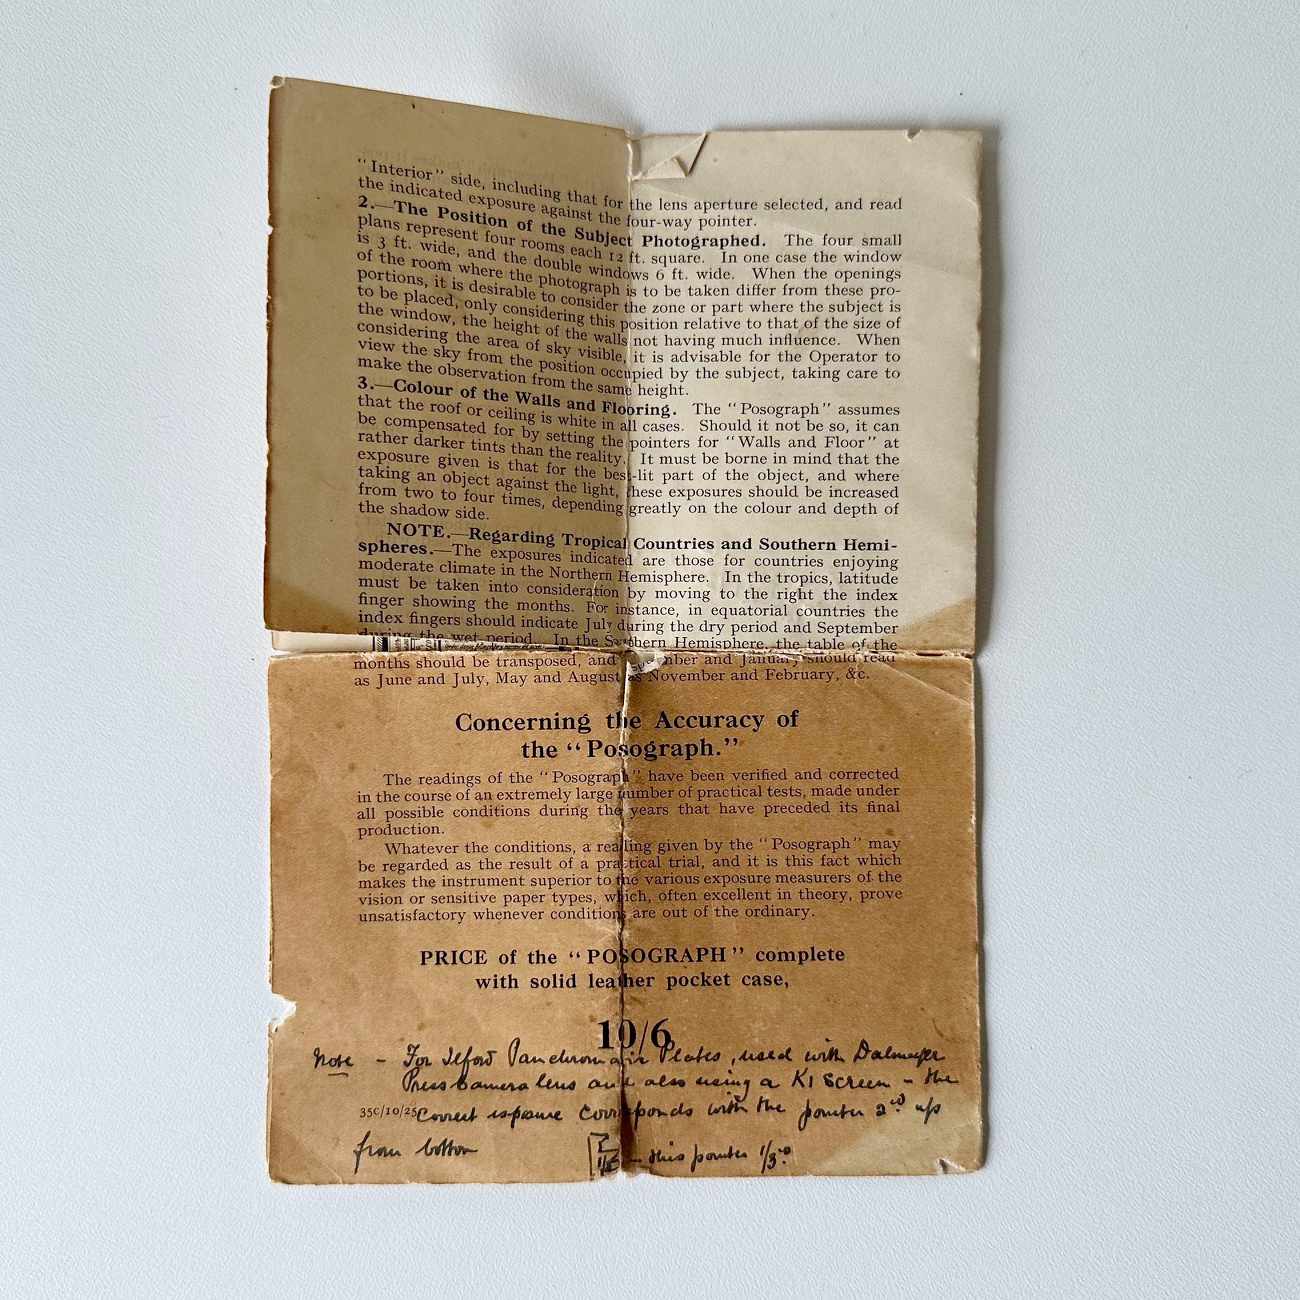 "Interior" side, including that for the lens aperture selected, and read
the indicated exposure against the four-way pointer.
2.—The Position of the Subject Photographed. The four small
plans represent four rooms each 12 ft. square. In one case the window
is 3 ft. wide, and the double windows 6 ft. wide. When the openings
of the room where the photograph is to be taken differ from these pro-
portions, it is desirable to consider the zone or part where the subject is
to be placed, only considering this position relative to that of the size of
the window, the height of the walls not having much influence. When
considering the area of sky visible, it is advisable for the Operator to
view the sky from the position occupied by the subject, taking care to
make the observation from the same height.
3.—Colour of the Walls and Flooring. The "Posograph" assumes
that the roof or ceiling is white in all cases. Should it not be so, it can
be compensated for by setting the pointers for "Walls and Floor" at
rather darker tints than the reality. It must be borne in mind that the
exposure given is that for the best-lit part of the object, and where
taking an object against the light, these exposures should be increased
from two to four times, depending greatly on the colour and depth of
the shadow side.
NOTE.—Regarding Tropical Countries and Southern Hemi-
spheres.—The exposures indicated are those for countries enjoying
moderate climate in the Northern Hemisphere. In the tropics, latitude
must be taken into consideration by moving to the right the index
finger showing the months. For instance, in equatorial countries the
index fingers should indicate July during the dry period and September
during the wet period. In the Southern Hemisphere, the table of the
months should be transposed, and December and January should read
as June and July, May and August as November and February, &c.
Concerning the Accuracy of
the "Posograph."
The readings of the "Posograph" have been verified and corrected
in the course of an extremely large number of practical tests, made under
all possible conditions during the years that have preceded its final
production.
Whatever the conditions, a reading given by the "Posograph" may
be regarded as the result of a practical trial, and it is this fact which
makes the instrument superior to the various exposure measurers of the
vision or sensitive paper types, which, often excellent in theory, prove
unsatisfactory whenever conditions are out of the ordinary.
PRICE of the "POSOGRAPH" complete
with solid leather pocket case,
10/6
Note - For Ilford Panchromatic Plates, used with Dalmeyer
Press Camera lens and also using a K1 Screen - the
35C/10/25 Correct exposure corresponds with the pointer 2nd up
from bottom this pointer 1/3rd